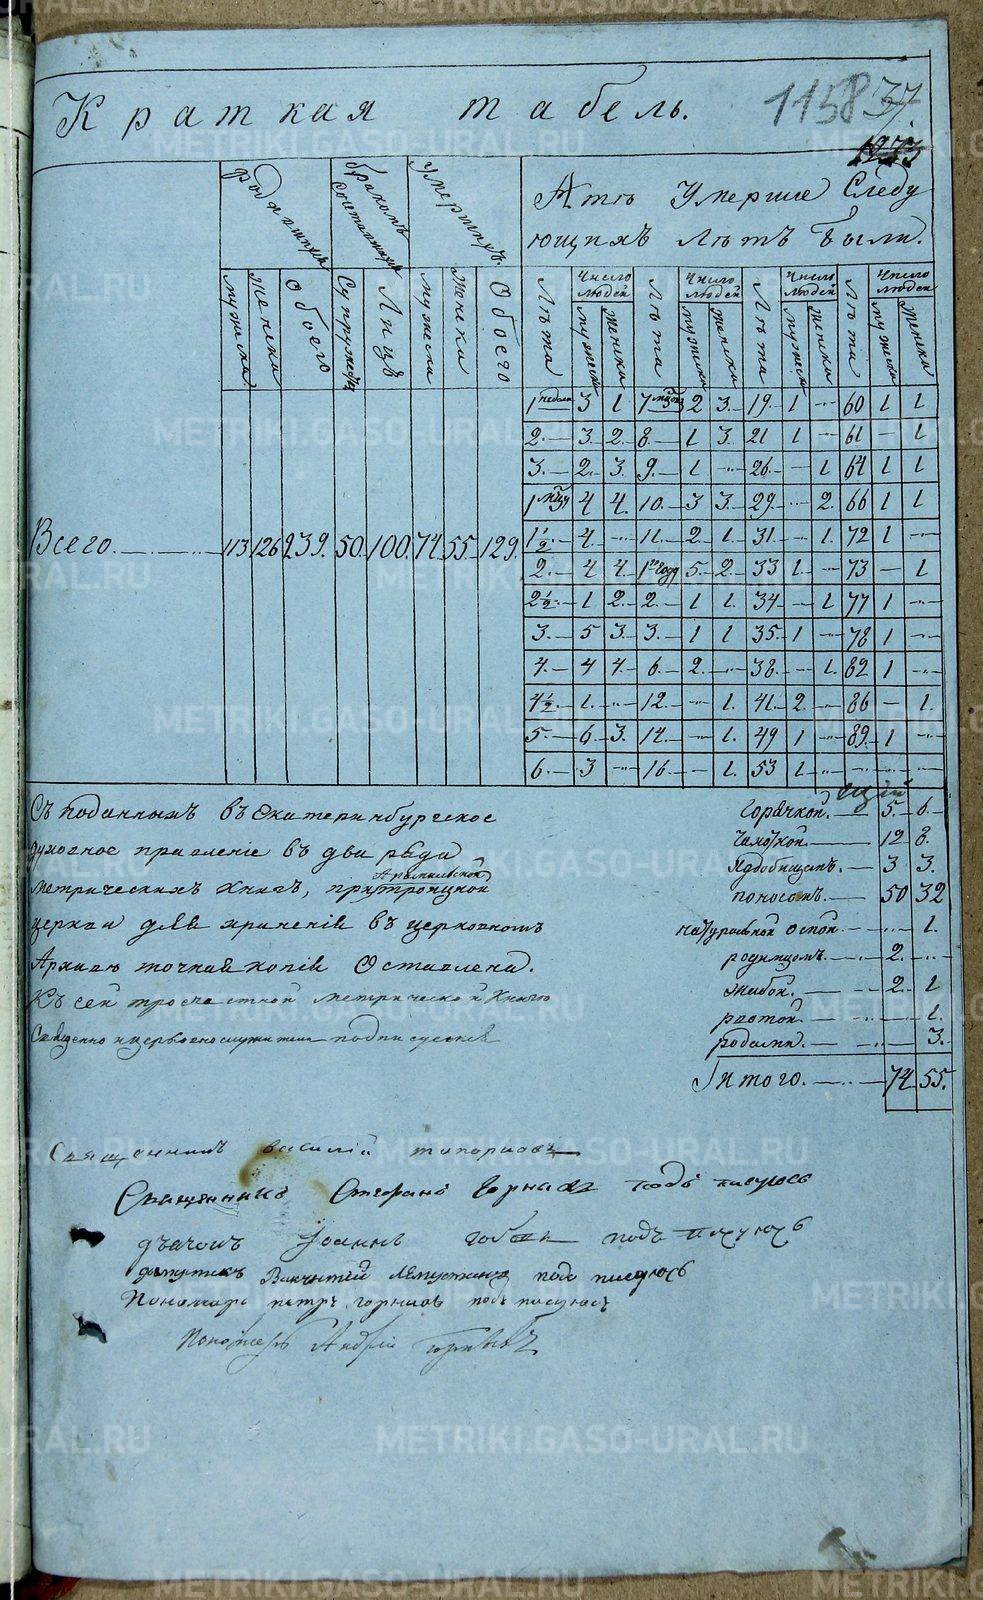 Краткая табель.
1158 37
Родившихся
бракомъ сочитавшихся
умершихъ.
А тѣ Умершіе Следу
ющихъ лѣтъ были.
мужеска женска обоего Супружествъ Лицъ мужеска женска Обоего
Лѣта Число людей Лѣта Число людей Лѣта Число людей Лѣта Число людей
мужеска женска мужеска женска мужеска женска мужеска женска
1 недели 3 1 7 2 3 19 1 — 60 1 1
2. 3. 2. 8. 1 3. 21 1 — 61 — 1
3. 2. 3. 9. 1 — 26. — 1 64 1 1
1 4 4. 10. 3 3. 29. — 2. 66 1 1
1½ 4. — 11. 2. 1. 31. — 1. 72 1 —
2. 4 4. 1 году 5. 2. 33 1. — 73 — 1
2½ 1 2. 2. 1 1. 34. — 1 77 1 —
3. 5 3. 3. 1 1 35. 1 — 78 1 —
4. 4 4. 6. 2. — 38. — 1. 82 1 —
4½ 1. — 12. — 1. 41. 2. — 86 — 1.
5. 6. 3. 14. — 1. 49 1 — 89. 1 —
6. 3 — 16. — 1. 53 1. — — — —
Всего. 113 126 239. 50. 100. 74 55. 129.
Съ Поданныхъ въ Екатеринбургское
духовное правленіе въ два ряда
Арамильской
метрическихъ книгъ, при троицкой
церкви для храненія въ церковномъ
Архивѣ точная копія Оставлена.
Къ сей метрической Книгѣ
Священно и церковнослужители подписуемся
Горячкой. 5. 6.
Чахоткой. 12 8.
3 3.
поносомъ. 50 32
натуральной оспой. — 1.
родимцомъ. 2. —
жабой. 2. 1
рвотой. — 1.
родами. — 3.
Итого. 74 55.
Священникъ василій топорковъ
Священникъ Стефанъ подъ писуюсь
дьяконъ Іоаннъ подъ писуюсь
подъ писуюсь
Пономарь петръ горныхъ подъ писуюсь
Пономарь Андрей
METRIKI.GASO-URAL.RU